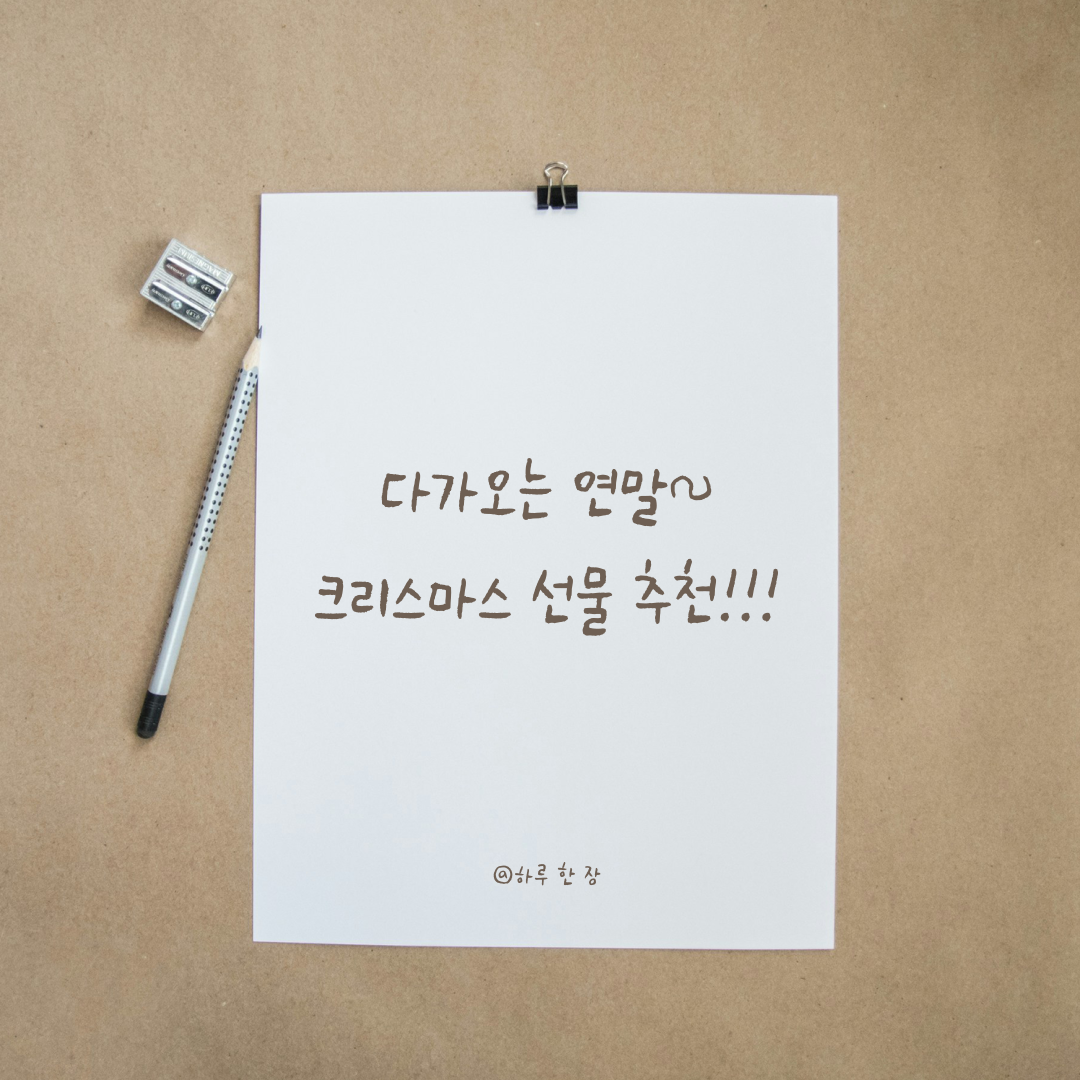 다가오는 연말~
크리스마스 선물 추천!!!
@하루 한 장